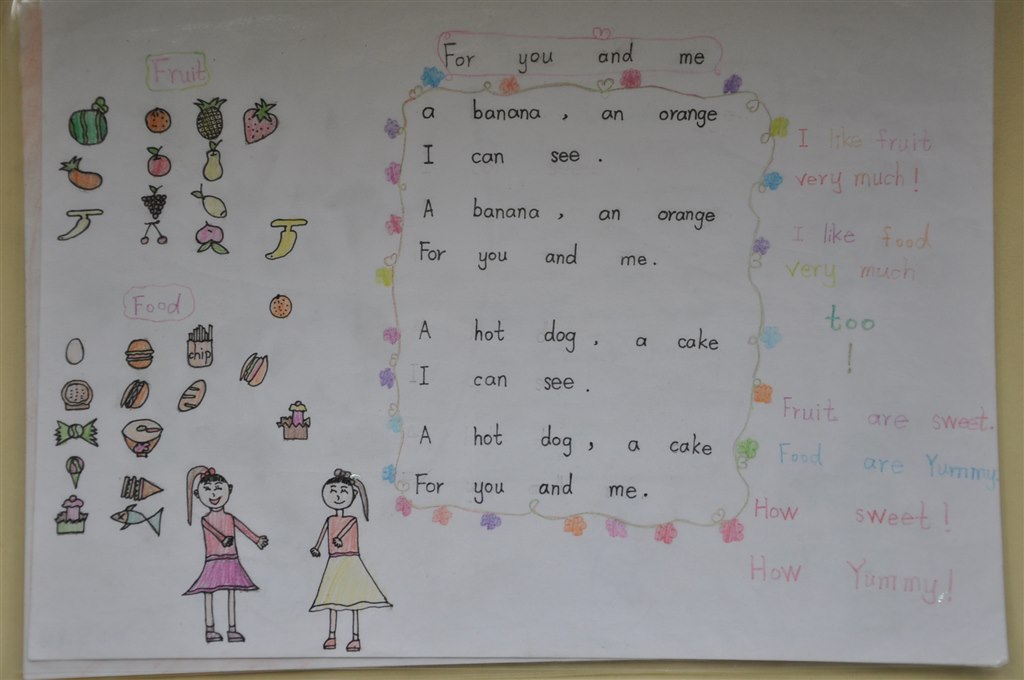 Fruit
Food
chip
For you and me
a banana, an orange
I can see.
A banana, an orange
For you and me.
A hot dog, a cake
I can see.
A hot dog, a cake
For you and me.
I like fruit
very much!
I like food
very much
too
!
Fruit are sweet.
Food are Yummy
How sweet!
How Yummy!